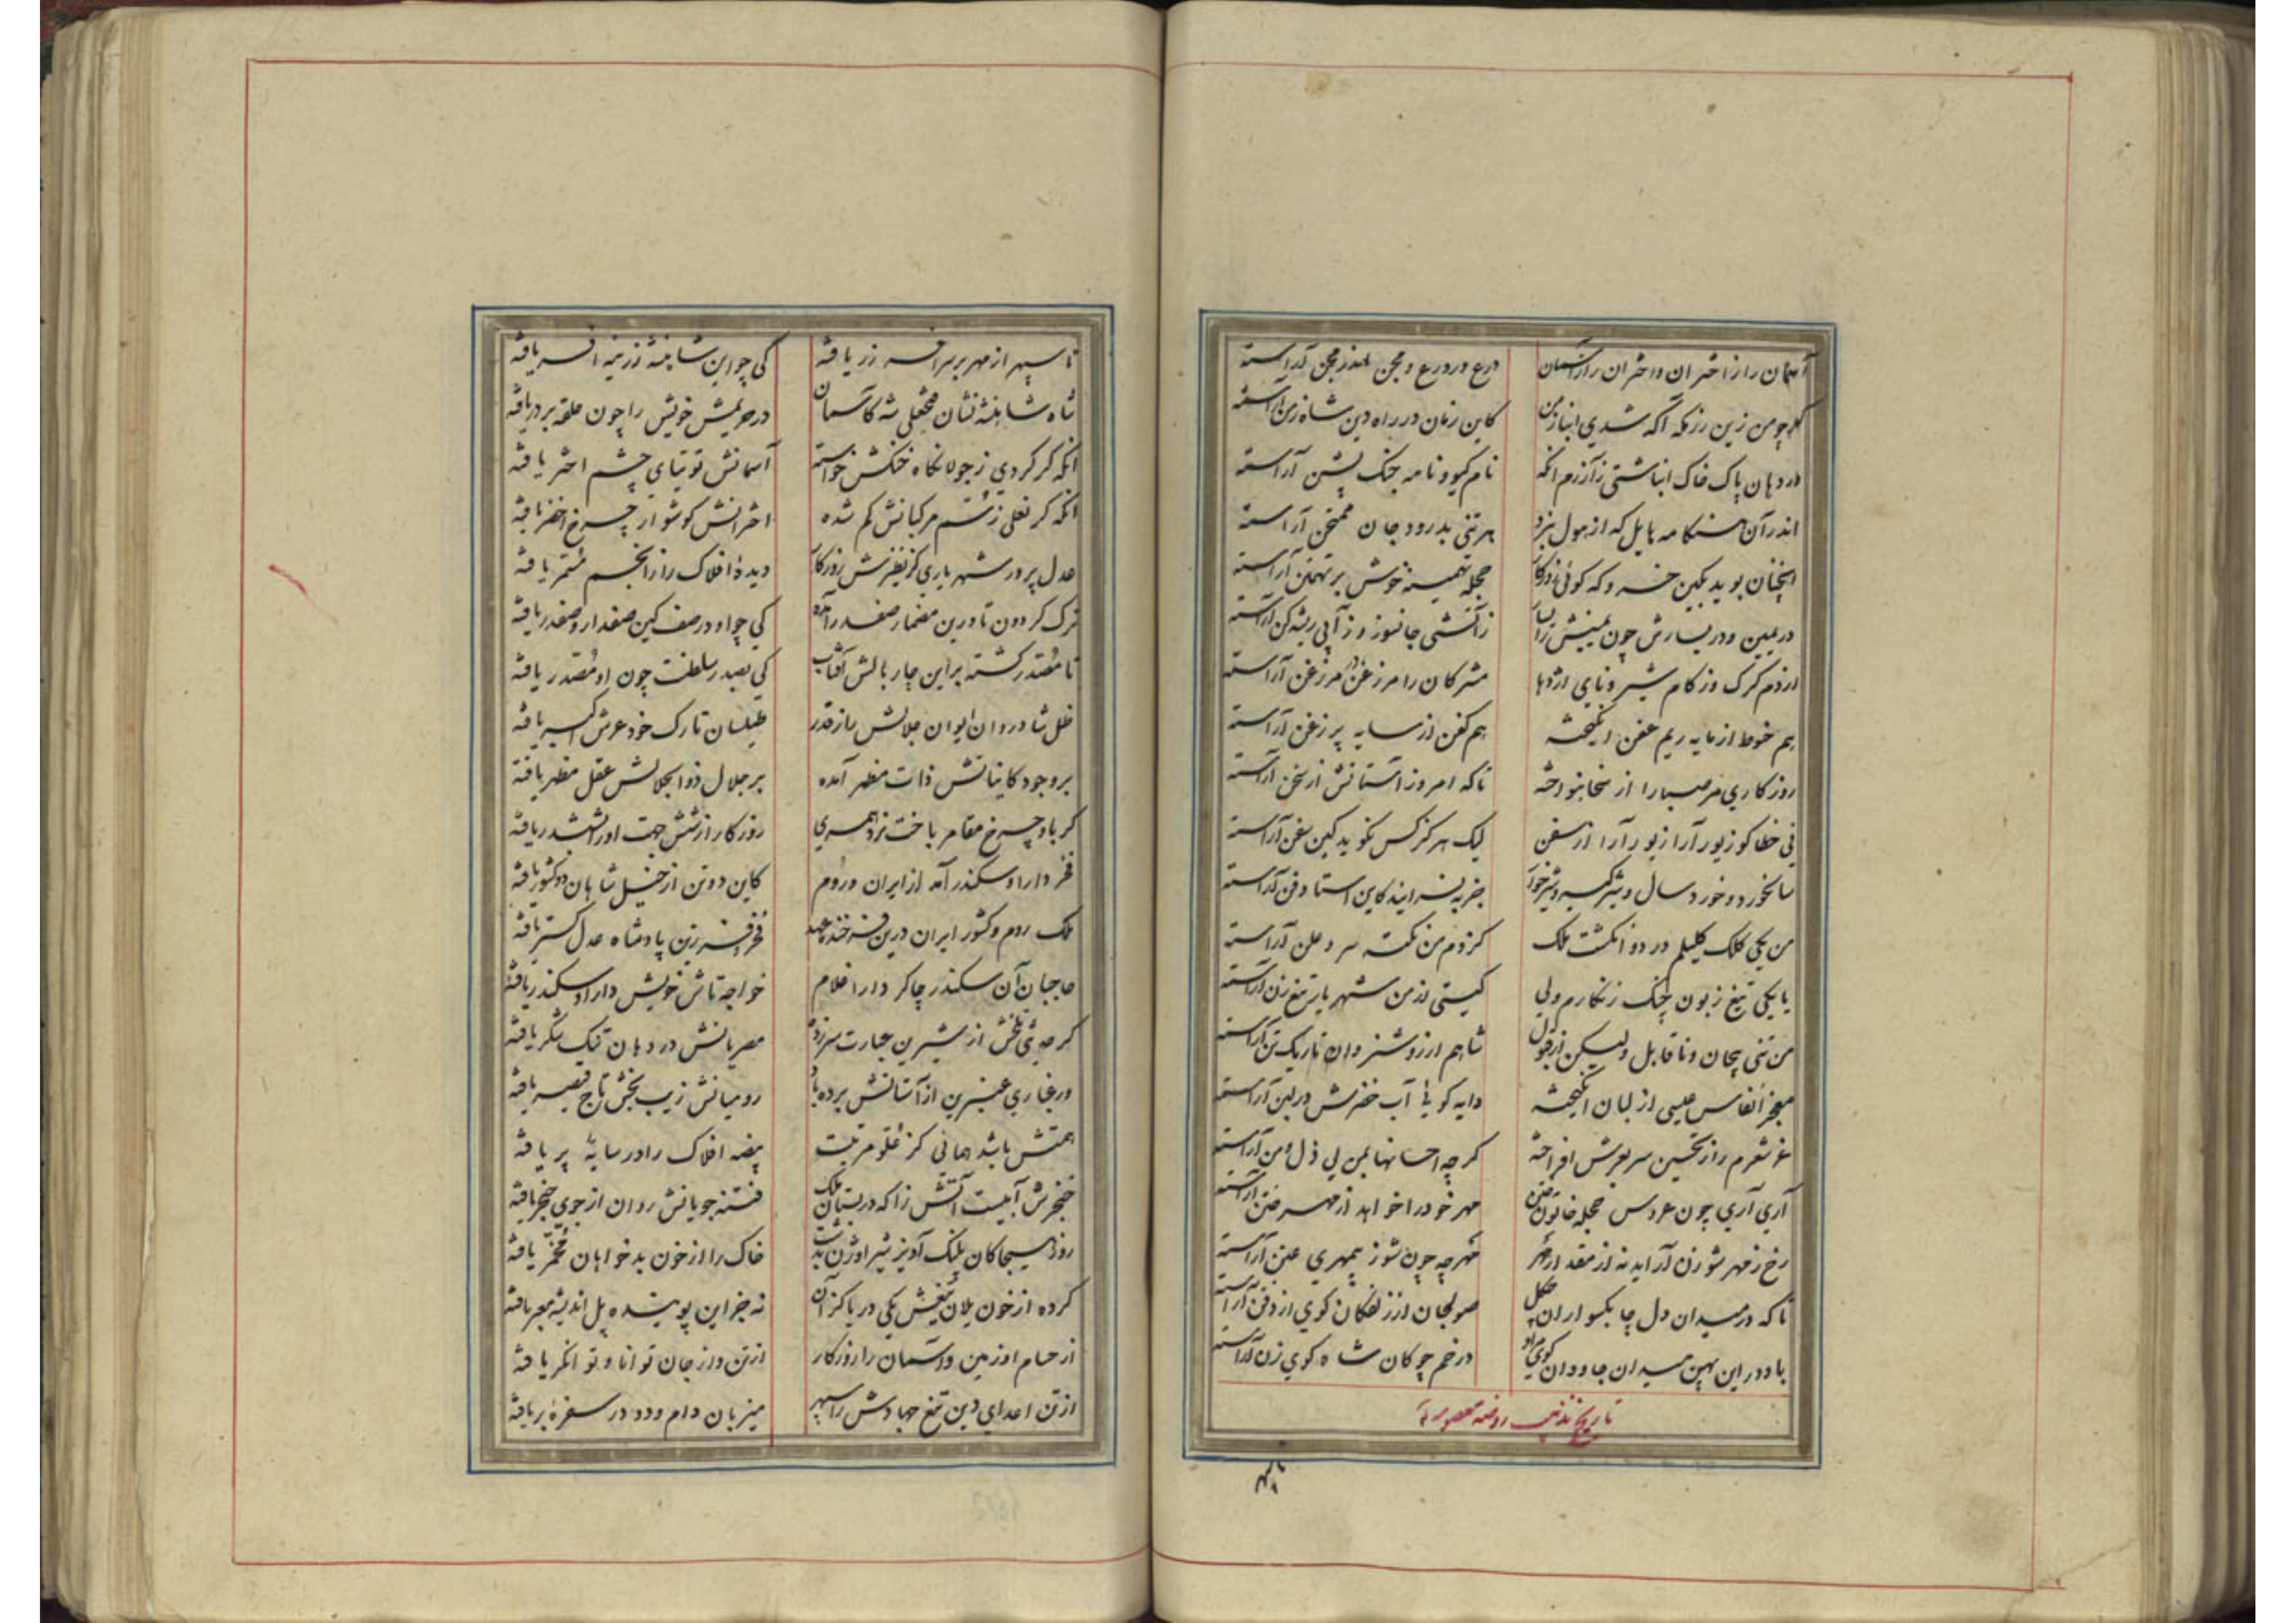 آسمان را ز اختران و اختران را ز آسمان درع در درع و مجن اندر مجن آراسته
گر چو من زین رزمگه آگه شدی انباز من کاین زمان در راه دین شاه زمن آراسته
در دهان پاک خاک انباشتی ز آزرم آنکه نام گیو و نامه جنگ پشن آراسته
اندر آن هنگامه هایل که از هول نبرد هر تنی بدرود جان ممتحن آراسته
آنچنان پوید بکین خسرو که گوئی روزگار حجله تهمینه خوش بر تهمتن آراسته
در یمین و در یسارش چون یمینش را یسار ز آتشی جانسوز و ز آبی ریشه کن آراسته
از دم گرگ و ز کام شیر و نای اژدها مشرکان را مرزغن در مرزغن آراسته
هم حنوط از مایه ریم عفن انگیخته هم کفن از سایه پر زغن آراسته
روزگاری مر صبا را از سخا بنواخته تا که امروز آستانش از سخن آراسته
نی خطا کو زیور آرا زیور آرا از سفن لیک هرگز کس نگوید کین سفن آراسته
سالخورد و خورد سال و شیرگیر و شیرخوار جز بفرایند کاین استاد فن آراسته
من یکی کلک کلیلم در دو انگشت ملک کز دم من نکته سر و علن آراسته
یا یکی تیغ زبون چنگ زنگارم ولی گیتی از من شهریار تیغ زن آراسته
من تنی بیجان و ناقابل ولیکن از قبول شاهم از روشنروان تاریک تن آراسته
معجز انفاس عیسی از لبان انگیخته دایه گویا آب خضرش در لبن آراسته
غز شعرم را ز تحسین سر بعرش افراخته گرچه احسانها بمن بی ذل و من آراسته
آری آری چون عروس حجله خاتون ختن مهر خود را خواهد از مهر ختن آراسته
رخ ز مهر شو زن آراید نه از مقدار مهر مهر چه چون شو ز بیمهری عنن آراسته
تا که در میدان دل چابکسواران چگل صولجان از زلفکان گوی از ذقن آراسته
باد در این پهن میدان جاودان گوی مراد در خم چوگان شاه گوی زن آراسته
تاریخ تذهیب روضه معصومه
تا سپهر
تا سپهر از مهر بر سر افسر زر یافته کی چو این شاهنشه زرینه افسر یافته
شاه شاهنشه نشان فتحعلی شه کآسمان در حریمش خویش را چون حلقه بر در یافته
آنکه گر گردی ز جولانگاه خنگش خواسته آسمانش توتیای چشم اختر یافته
آنکه گر نعلی ز سم مرکبانش گم شده اخترانش گوشوار چرخ اخضر یافته
عدل پرور شهریاری کز نظیرش روزگار دیده افلاک را ز انجم مسمر یافته
ترک گردون تا درین مضمار صفدر آمده کی چو او در صف کین صفدار و صفدر یافته
تا مصدر گشته بر این چار بالش آفتاب کی بصدر سلطنت چون او مصدر یافته
ظل شادروان ایوان جلالش را ز قدر طیلسان تارک خود عرش اکبر یافته
بر وجود کایناتش ذات مظهر آمده بر جلال ذوالجلالش عقل مظهر یافته
گر با و چرخ مقامر باخت نرد همسری روزگار از شش جهت او را ششدر یافته
فخر دارا و سکندر آمد از ایران و روم کاین دو تن از خیل شاهان دو کشور یافته
ملک روم و کشور ایران درین فرخنده عهد فخر و فر زین پادشاه عدل گستر یافته
حاجبان آن سکندر چاکر دارا غلام خواجه تاش خویش دارا و سکندر یافته
گر حدیثی تلخش از شیرین عبارت سر زده مصریانش در دهان تنگ شکر یافته
ور غباری عنبرین از آستانش برده باد رومیانش زیب بخش تاج قیصر یافته
همتش باشد همائی کز علو مرتبت بیضه افلاک را در سایه پر یافته
خنجرش آبیست آتش زا که در بستان ملک فتنه جویانش روان از جوی خنجر یافته
روز هیجا کان پلنگ آویز شیر اوژن بدشت خاک را از خون بدخواهان مخمر یافته
کرده از خون یلان تیغش یکی دریا کز آن نه جز این پوینده پل اندیشه معبر یافته
از حسام او زمین و آسمان را روزگار از تن و از جان توانا و توانگر یافته
از تن اعدای دین تیغ جهادش را سپهر میزبان دام و دد در سفره بر یافته